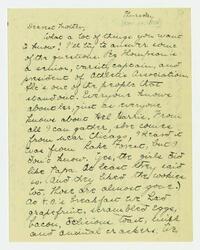 Thursday
Dearest Mother,
What a lot of things you want
to know! I'll try to answer some
of the questions. Peg Thompson is
a senior, varsity captain, and
president of Athletic Association.
He's one of the people that
stand out. Everyone knows
about her, just as everyone
knows about Hel Harris. From
all I can gather, she comes
from near Chicago. I heard it
was from Lake Forest, but I
don't know. Yes, the girls did
like Pam. At least they said
so. And they liked the cookies
too. (Those are almost gone.)
Co o.a.'s breakfast we had
grapefruit, scrambled eggs,
bacon, delicious toast,
and animal crackers. We